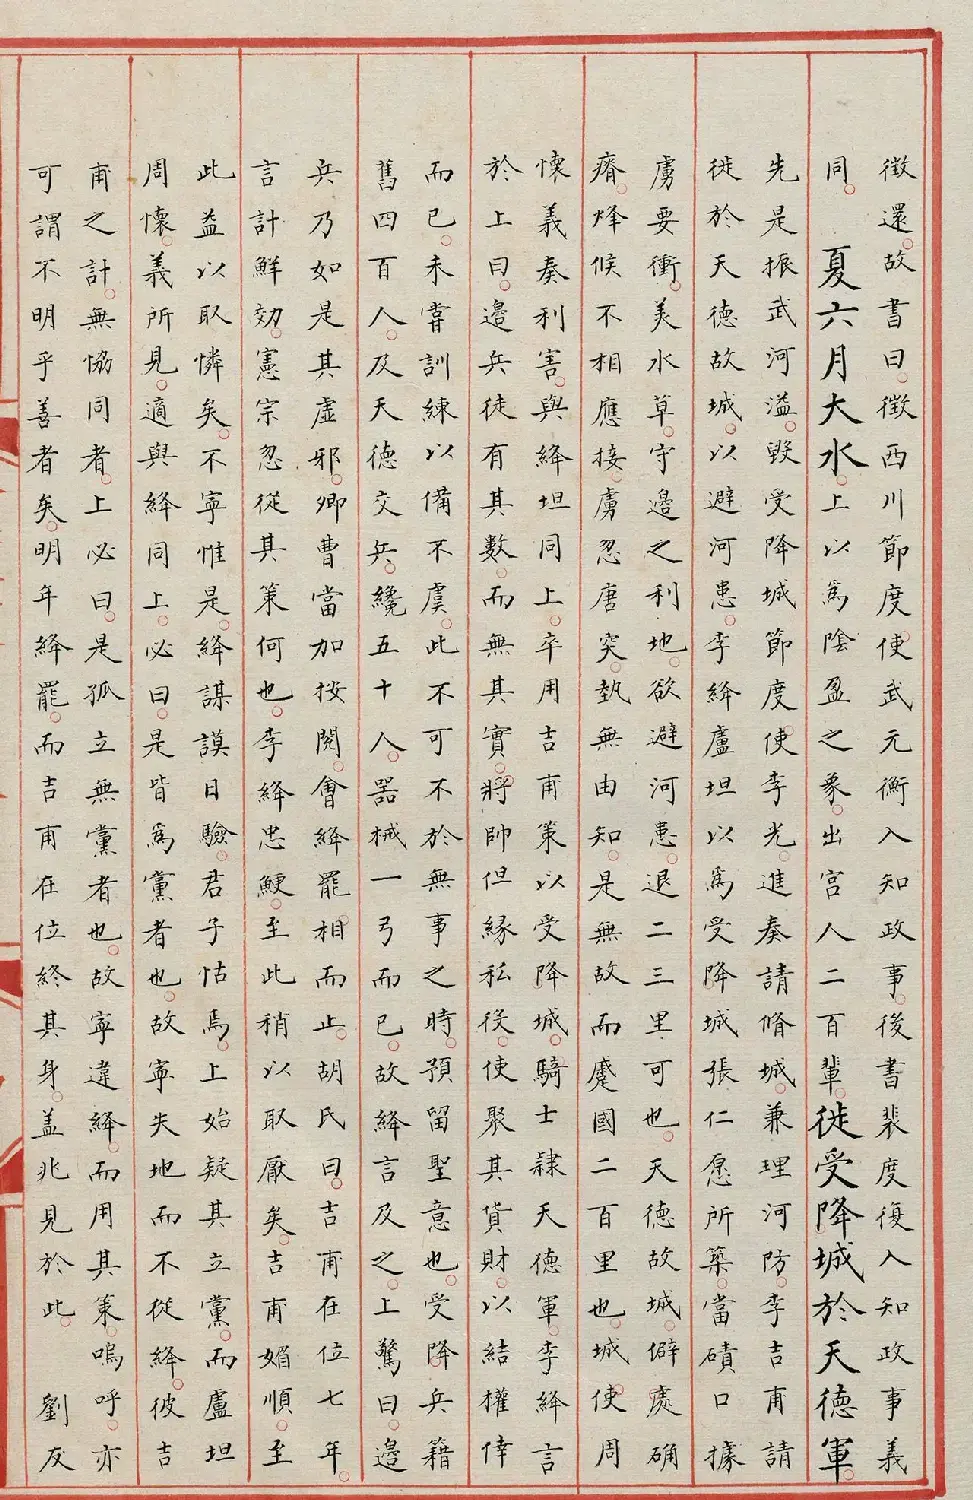 徵還。故書曰。徵西川節度使武元衡入知政事。後書裴度復入知政事義
同。夏六月大水。上以為陰盈之象。出宮人二百輩。徙受降城於天德軍。
先是振武河溢。毀受降城節度使李光進奏請脩城。兼理河防。李吉甫請
徙於天德故城。以避河患。李絳盧坦以為受降城張仁愿所築。當磧口據
虜要衝。美水草。守邊之利地。欲避河患。退二三里可也。天德故城。僻處确
瘠。烽候不相應接。虜忽唐突。埶無由知。是無故而蹙國二百里也。城使周
懷義奏利害。與絳坦同上。卒用吉甫策以受降城。騎士隸天德軍。李絳言
於上曰。邊兵徒有其數。而無其實。將帥但緣私役。使聚其貨財。以結權倖
而已。未嘗訓練以備不虞。此不可不於無事之時。預留聖意也。受降兵籍
舊四百人。及天德交兵。纔五十人。器械一弓而已。故絳言及之。上驚曰。邊
兵乃如是其虛邪。卿曹當加按閱。會絳罷相而止。胡氏曰。吉甫在位七年。
言計鮮効。憲宗忽從其策何也。李絳忠鯁。至此稍以取厭矣。吉甫媚順。至
此益以取憐矣。不寧惟是。絳謀謨日驗。君子怙焉。上始疑其立黨。而盧坦
周懷。義所見。適與絳同上。必曰。是皆為黨者也。故寧失地而不從絳。彼吉
甫之計。無恊同者。上必曰。是孤立無黨者也。故寧違絳。而用其策。嗚呼。亦
可謂不明乎善者矣。明年絳罷。而吉甫在位終其身。盖兆見於此。 劉友